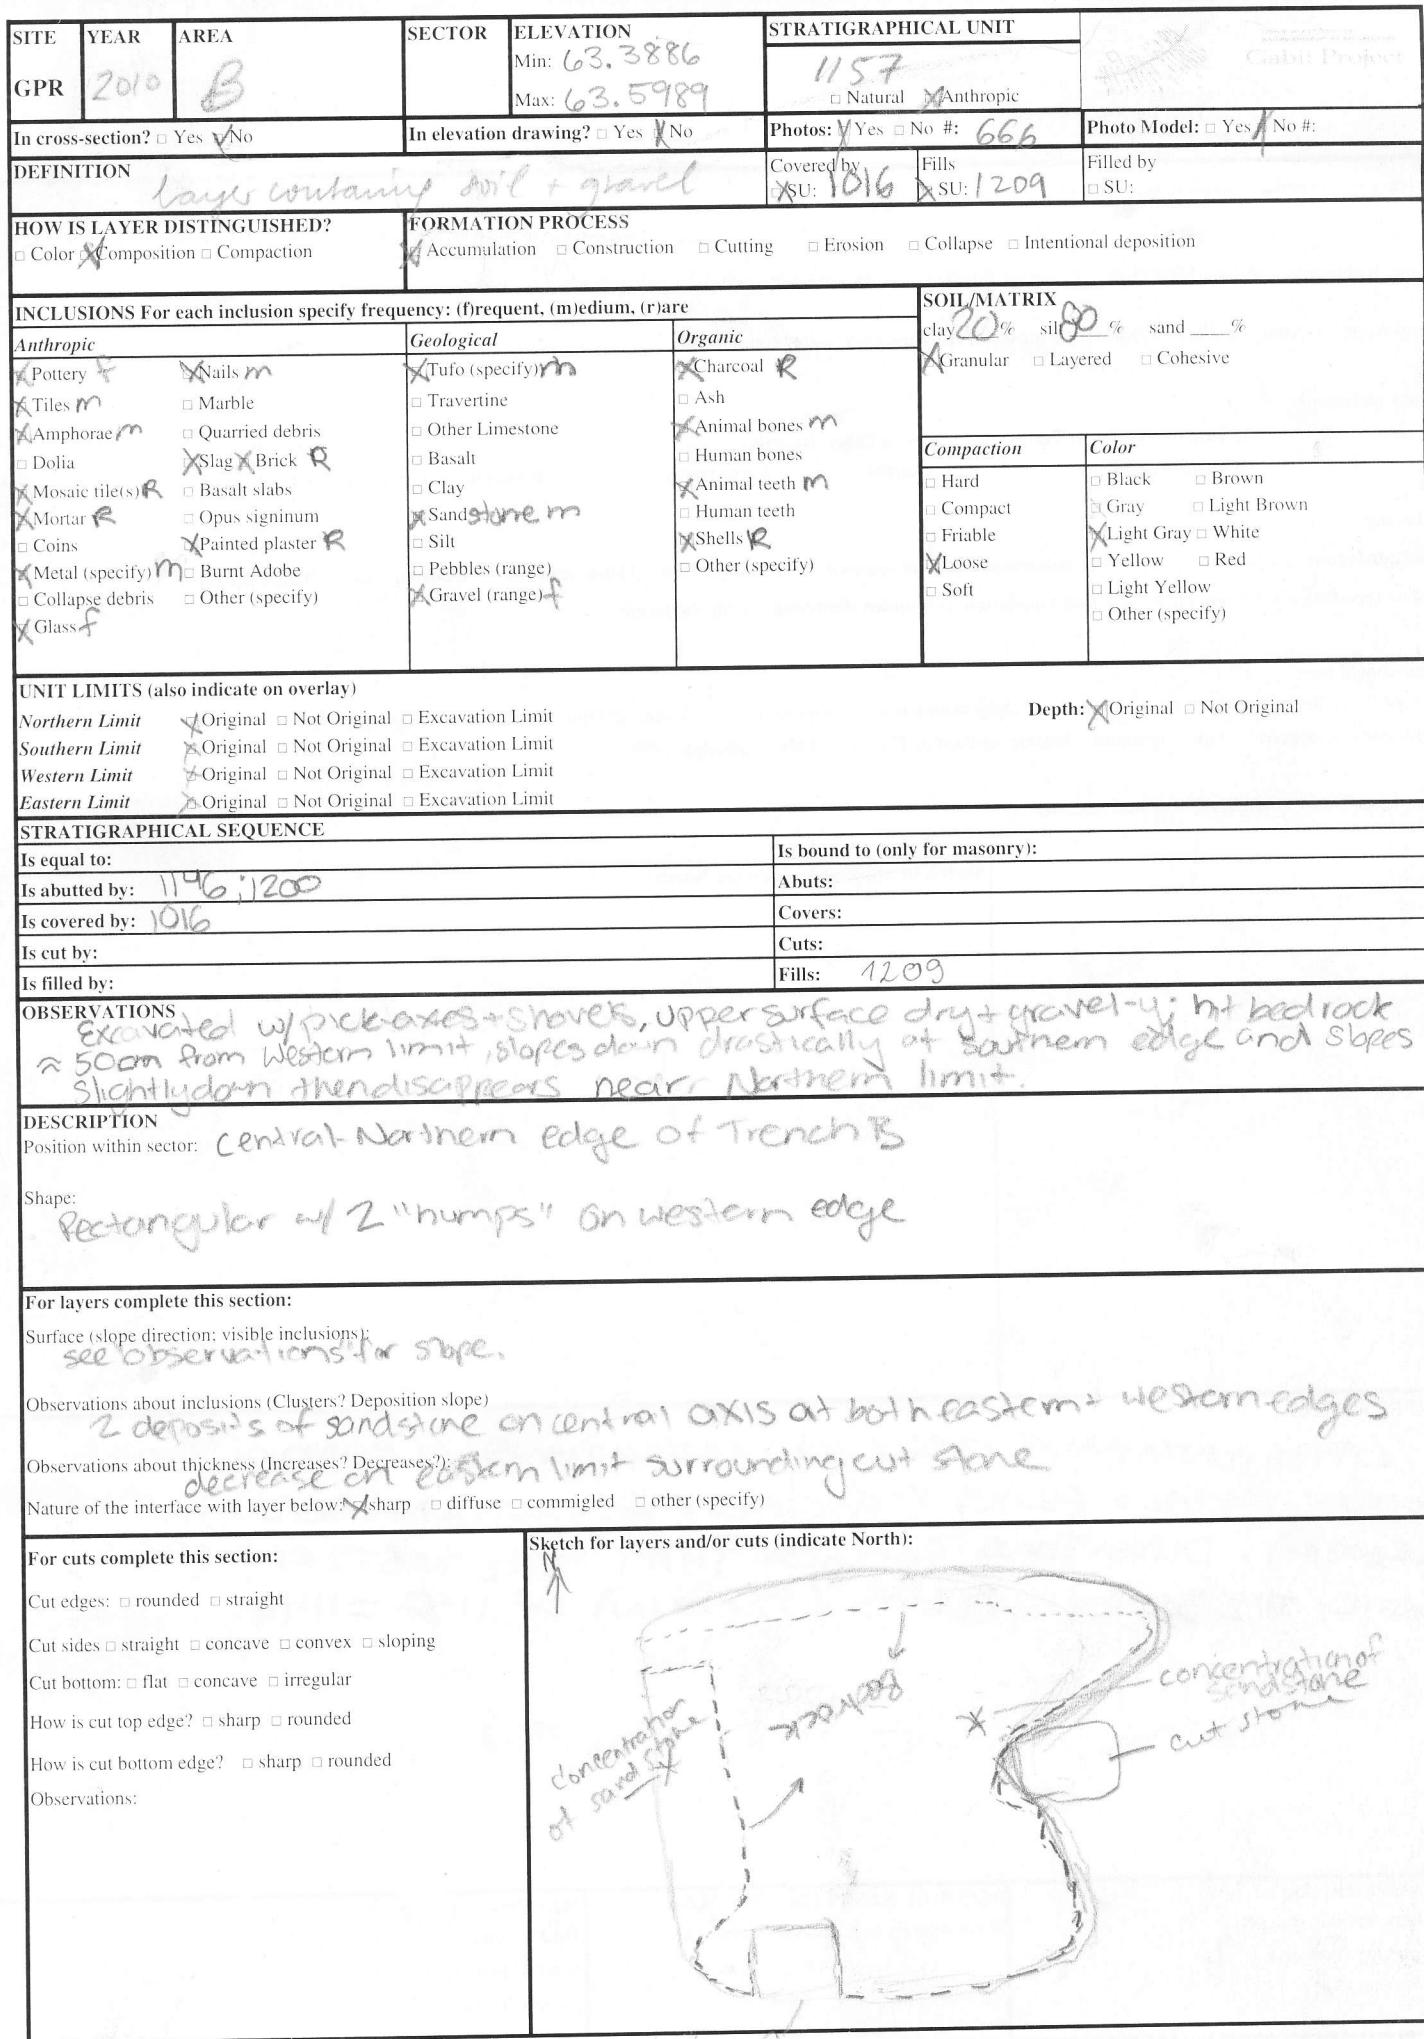 SITE YEAR AREA SECTOR ELEVATION STRATIGRAPHICAL UNIT
GPR 2010 B Min: 63.3886 1157 Gabii Project
Max: 63.5989 □ Natural ☒ Anthropic
In cross-section? □ Yes ☒ No In elevation drawing? □ Yes ☒ No Photos: ☒ Yes □ No #: 666 Photo Model: □ Yes ☒ No #:
DEFINITION layer containing soil + gravel Covered by ☒ SU: 1016 Fills ☒ SU: 1209 Filled by □ SU:
HOW IS LAYER DISTINGUISHED? FORMATION PROCESS
□ Color ☒ Composition □ Compaction ☒ Accumulation □ Construction □ Cutting □ Erosion □ Collapse □ Intentional deposition
INCLUSIONS For each inclusion specify frequency: (f)requent, (m)edium, (r)are
Anthropic
☒ Pottery f ☒ Nails m
☒ Tiles m □ Marble
☒ Amphorae m □ Quarried debris
□ Dolia ☒ Slag ☒ Brick R
☒ Mosaic tile(s) R □ Basalt slabs
☒ Mortar R □ Opus signinum
□ Coins ☒ Painted plaster R
☒ Metal (specify) m □ Burnt Adobe
□ Collapse debris □ Other (specify)
☒ Glass f
Geological
☒ Tufo (specify) m
□ Travertine
□ Other Limestone
□ Basalt
□ Clay
☒ Sandstone m
□ Silt
□ Pebbles (range)
☒ Gravel (range) f
Organic
☒ Charcoal R
□ Ash
☒ Animal bones m
□ Human bones
☒ Animal teeth m
□ Human teeth
☒ Shells R
□ Other (specify)
SOIL/MATRIX
clay 20 % silt 80 % sand ____%
☒ Granular □ Layered □ Cohesive
Compaction
□ Hard
□ Compact
□ Friable
☒ Loose
□ Soft
Color
□ Black □ Brown
□ Gray □ Light Brown
☒ Light Gray □ White
□ Yellow □ Red
□ Light Yellow
□ Other (specify)
UNIT LIMITS (also indicate on overlay)
Northern Limit ☒ Original □ Not Original □ Excavation Limit Depth: ☒ Original □ Not Original
Southern Limit ☒ Original □ Not Original □ Excavation Limit
Western Limit ☒ Original □ Not Original □ Excavation Limit
Eastern Limit ☒ Original □ Not Original □ Excavation Limit
STRATIGRAPHICAL SEQUENCE
Is equal to: Is bound to (only for masonry):
Is abutted by: 1196; 1200 Abuts:
Is covered by: 1016 Covers:
Is cut by: Cuts:
Is filled by: Fills: 1209
OBSERVATIONS
Excavated w/pickaxes + shovels, upper surface dry + gravel-y; hit bedrock
≈ 50cm from western limit, slopes down drastically at southern edge and slopes
slightly down then disappears near Northern limit.
DESCRIPTION
Position within sector: Central-Northern edge of Trench B
Shape:
Rectangular w/ 2 "humps" on western edge
For layers complete this section:
Surface (slope direction; visible inclusions):
see "observations" for slope.
Observations about inclusions (Clusters? Deposition slope)
2 deposits of sandstone on central axis at both eastern + western edges
Observations about thickness (Increases? Decreases?):
decrease on eastern limit surrounding cut stone
Nature of the interface with layer below: ☒ sharp □ diffuse □ commigled □ other (specify)
For cuts complete this section:
Cut edges: □ rounded □ straight
Cut sides □ straight □ concave □ convex □ sloping
Cut bottom: □ flat □ concave □ irregular
How is cut top edge? □ sharp □ rounded
How is cut bottom edge? □ sharp □ rounded
Observations:
Sketch for layers and/or cuts (indicate North):
N
concentration of
sandstone
cut stone
Bedrock
concentration
of sandstone